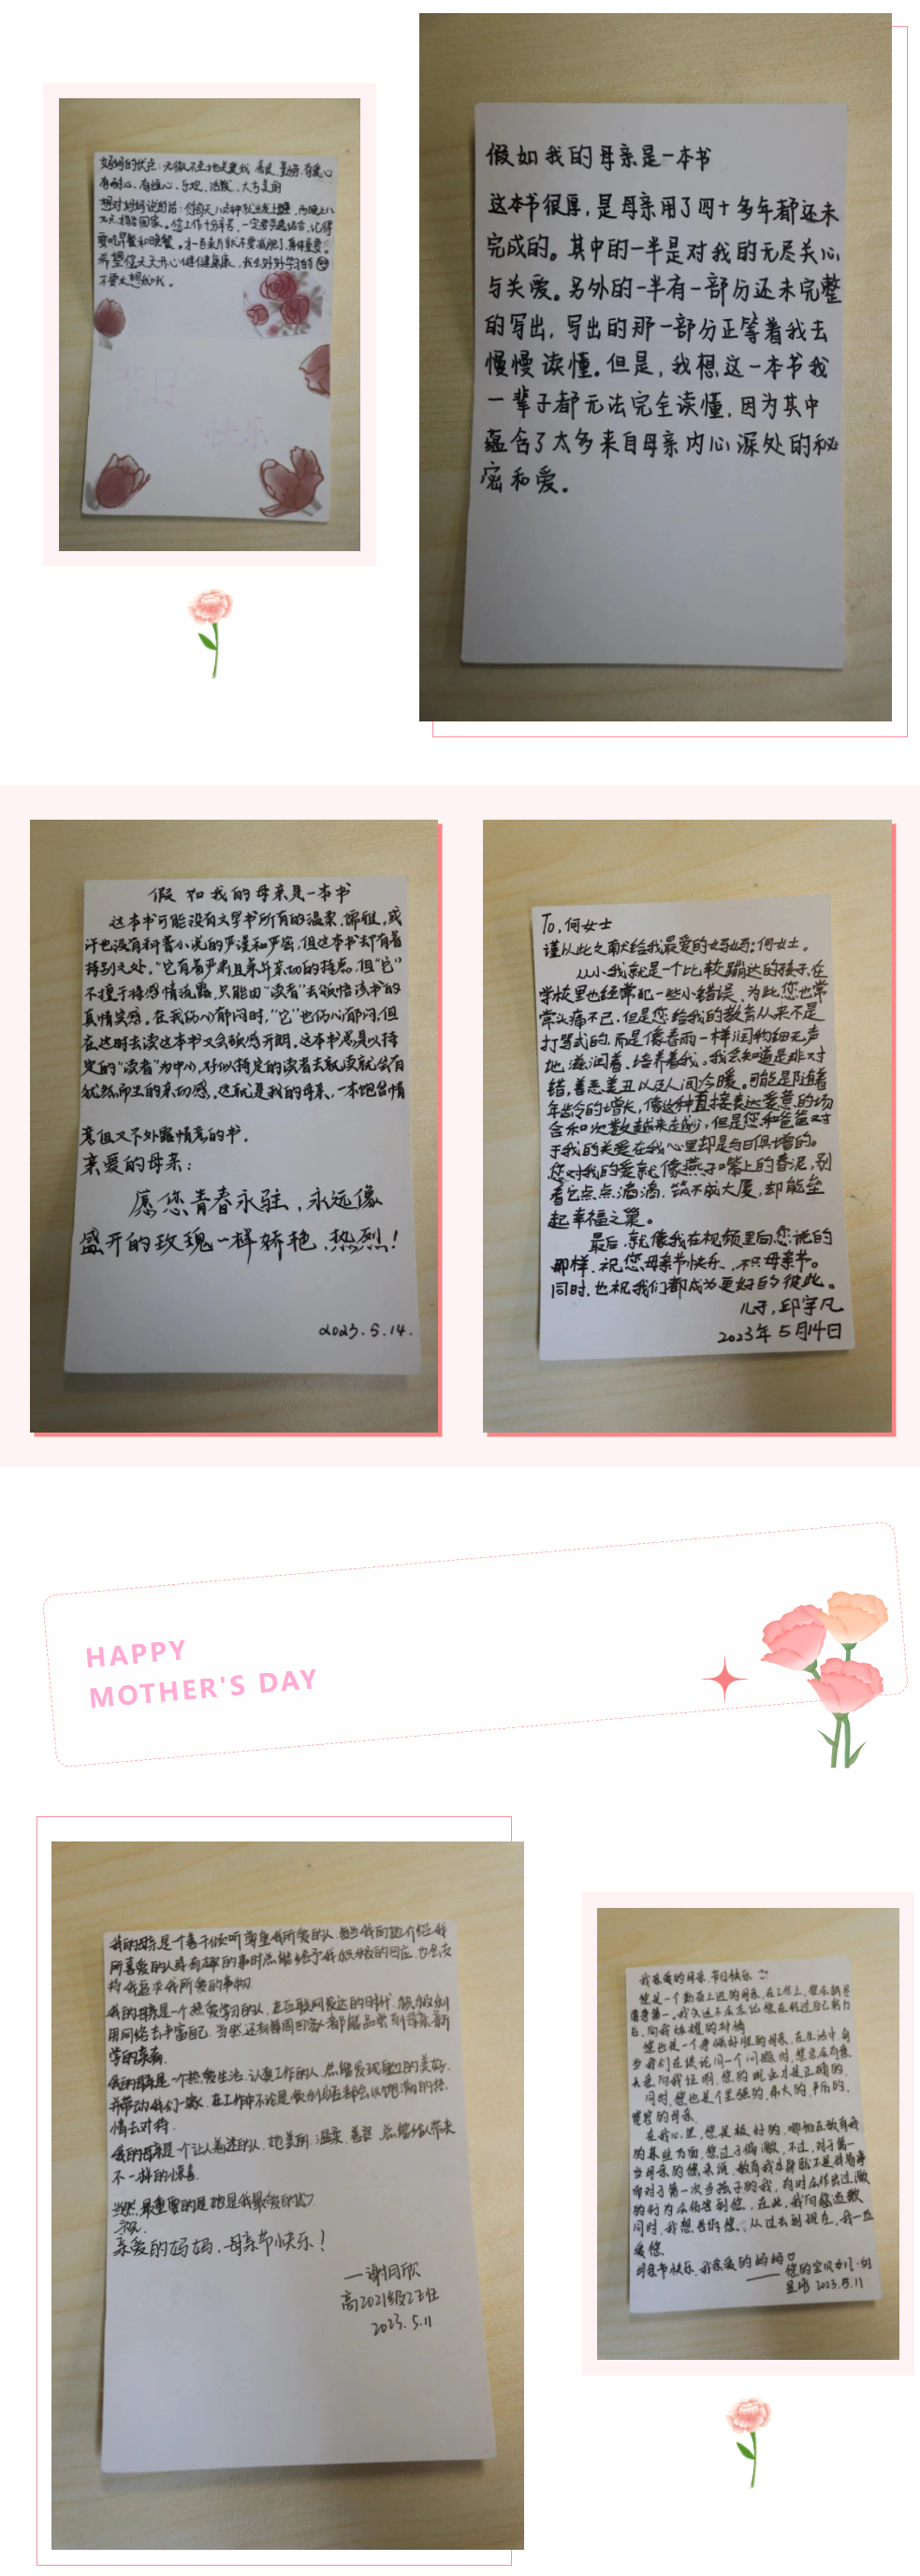 妈妈的优点：无微不至地关爱我 善良 勤劳 有爱心
有耐心、有恒心、乐观、活泼、大方美丽
想对妈妈说的话：
不要太想我哦。
假如我的母亲是一本书
这本书很厚，是母亲用了四十多年都还未
完成的。其中的一半是对我的无尽关心
与关爱。另外的一半有一部分还未完整
的写出，写出的那一部分正等着我去
慢慢读懂。但是，我想这一本书我
一辈子都无法完全读懂，因为其中
蕴含了太多来自母亲内心深处的秘
密和爱。
假如我的母亲是一本书
这本书可能没有文学书所有的温柔、儒雅，或
许也没有科普小说的严谨和严密，但这本书却有着
特别之处。“它有着严肃且兼并亲切的特点，但“它”
不擅于将感情流露，只能由“读者”去领悟该书的
真情实感。在我伤心郁闷时，“它”也伤心郁闷，但
在这时去读这本书又会敏感开朗。这本书总是以特
定的“读者”为中心，好似特定的读者去读就会有
犹然而生的亲切感。这就是我的母亲，一本饱含情
意但又不外露情意的书。
亲爱的母亲：
愿您青春永驻，永远像
盛开的玫瑰一样娇艳、热烈！
2023.5.14.
To，何女士
谨从此文献给我最爱的妈妈：何女士。
从小我就是一个比较蹦达的孩子，在
学校里也经常犯一些小错误，为此，您也常
常头痛不已，但是您给我的教育从来不是
打骂式的，而是像春雨一样润物细无声
地滋润着、培养着我。我会知道是非对
错，善恶美丑以及人间冷暖。可能是随着
年龄的增长，像这种直接表达爱意的场
合和次数越来越少，但是您和爸爸对
于我的关爱在我心里却是与日俱增的。
您对我的爱就像燕子嘴上的春泥，别
看它点点滴滴，筑不成大厦，却能垒
起幸福之巢。
最后，就像我在视频里向您说的
那样，祝您母亲节快乐、不只母亲节。
同时，也祝我们都成为更好的彼此。
儿子，邱宇凡
2023年5月14日
HAPPY
MOTHER'S DAY
我的母亲是个善于倾听尊重我所爱的人，每当我向她介绍我
所喜爱的人或有趣的事时总能给予我积极的回应，也会支
持我追求我所爱的事物.
我的母亲是一个热爱学习的人，在互联网发达的时代，积极利
用网络去丰富自己，当然还有每周回家都能品尝到母亲新
学的菜肴.
我的母亲是一个热爱生活，认真工作的人，总能发现身边的美好，
并带动我们一家，在工作中不论是
情去对待.
我的母亲是个让人着迷的人，她美丽，温柔，善良，总能给人带来
不一样的惊喜.
当然，最重要的是她是我最爱的妈
亲爱的妈妈，母亲节快乐！
高2021级
2023.5.11
我亲爱的母亲，节日快乐
您是一个勤奋上进的母亲，在工作上，
后，向我炫耀的神情
您也是一个争强好胜的母亲，在生活中，每
当我们在谈论同一个问题时，
向我证明，您的观点才是正确的.
同时，您也是个坚强的，伟大的，平凡的，
的母亲.
在我心里，您是极好的，哪怕在教育我
的某些方面，您过于偏激，不过，对于第一
当母亲的您来说，教育我本身就不是件易事
而对于第一次当孩子的我，有时会作出过激
的行为会伤害到您，在此，我向您道歉
同时，我想告诉您，从过去到现在，我一直
爱您
母亲节快乐，我亲爱的妈妈
2023.5.11